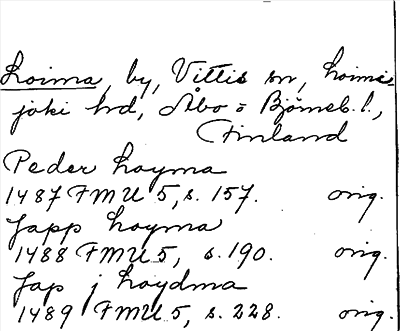 Loima, by, Vittis sn, Loimi-
joki hd, Åbo o Björneb. l.,
Finland
Peder Loyma
1487 FMU 5, s. 157. orig.
Japp Loyma
1488 FMU 5, s. 190. orig.
Jap j Loydma
1489 FMU 5, s. 228. orig.